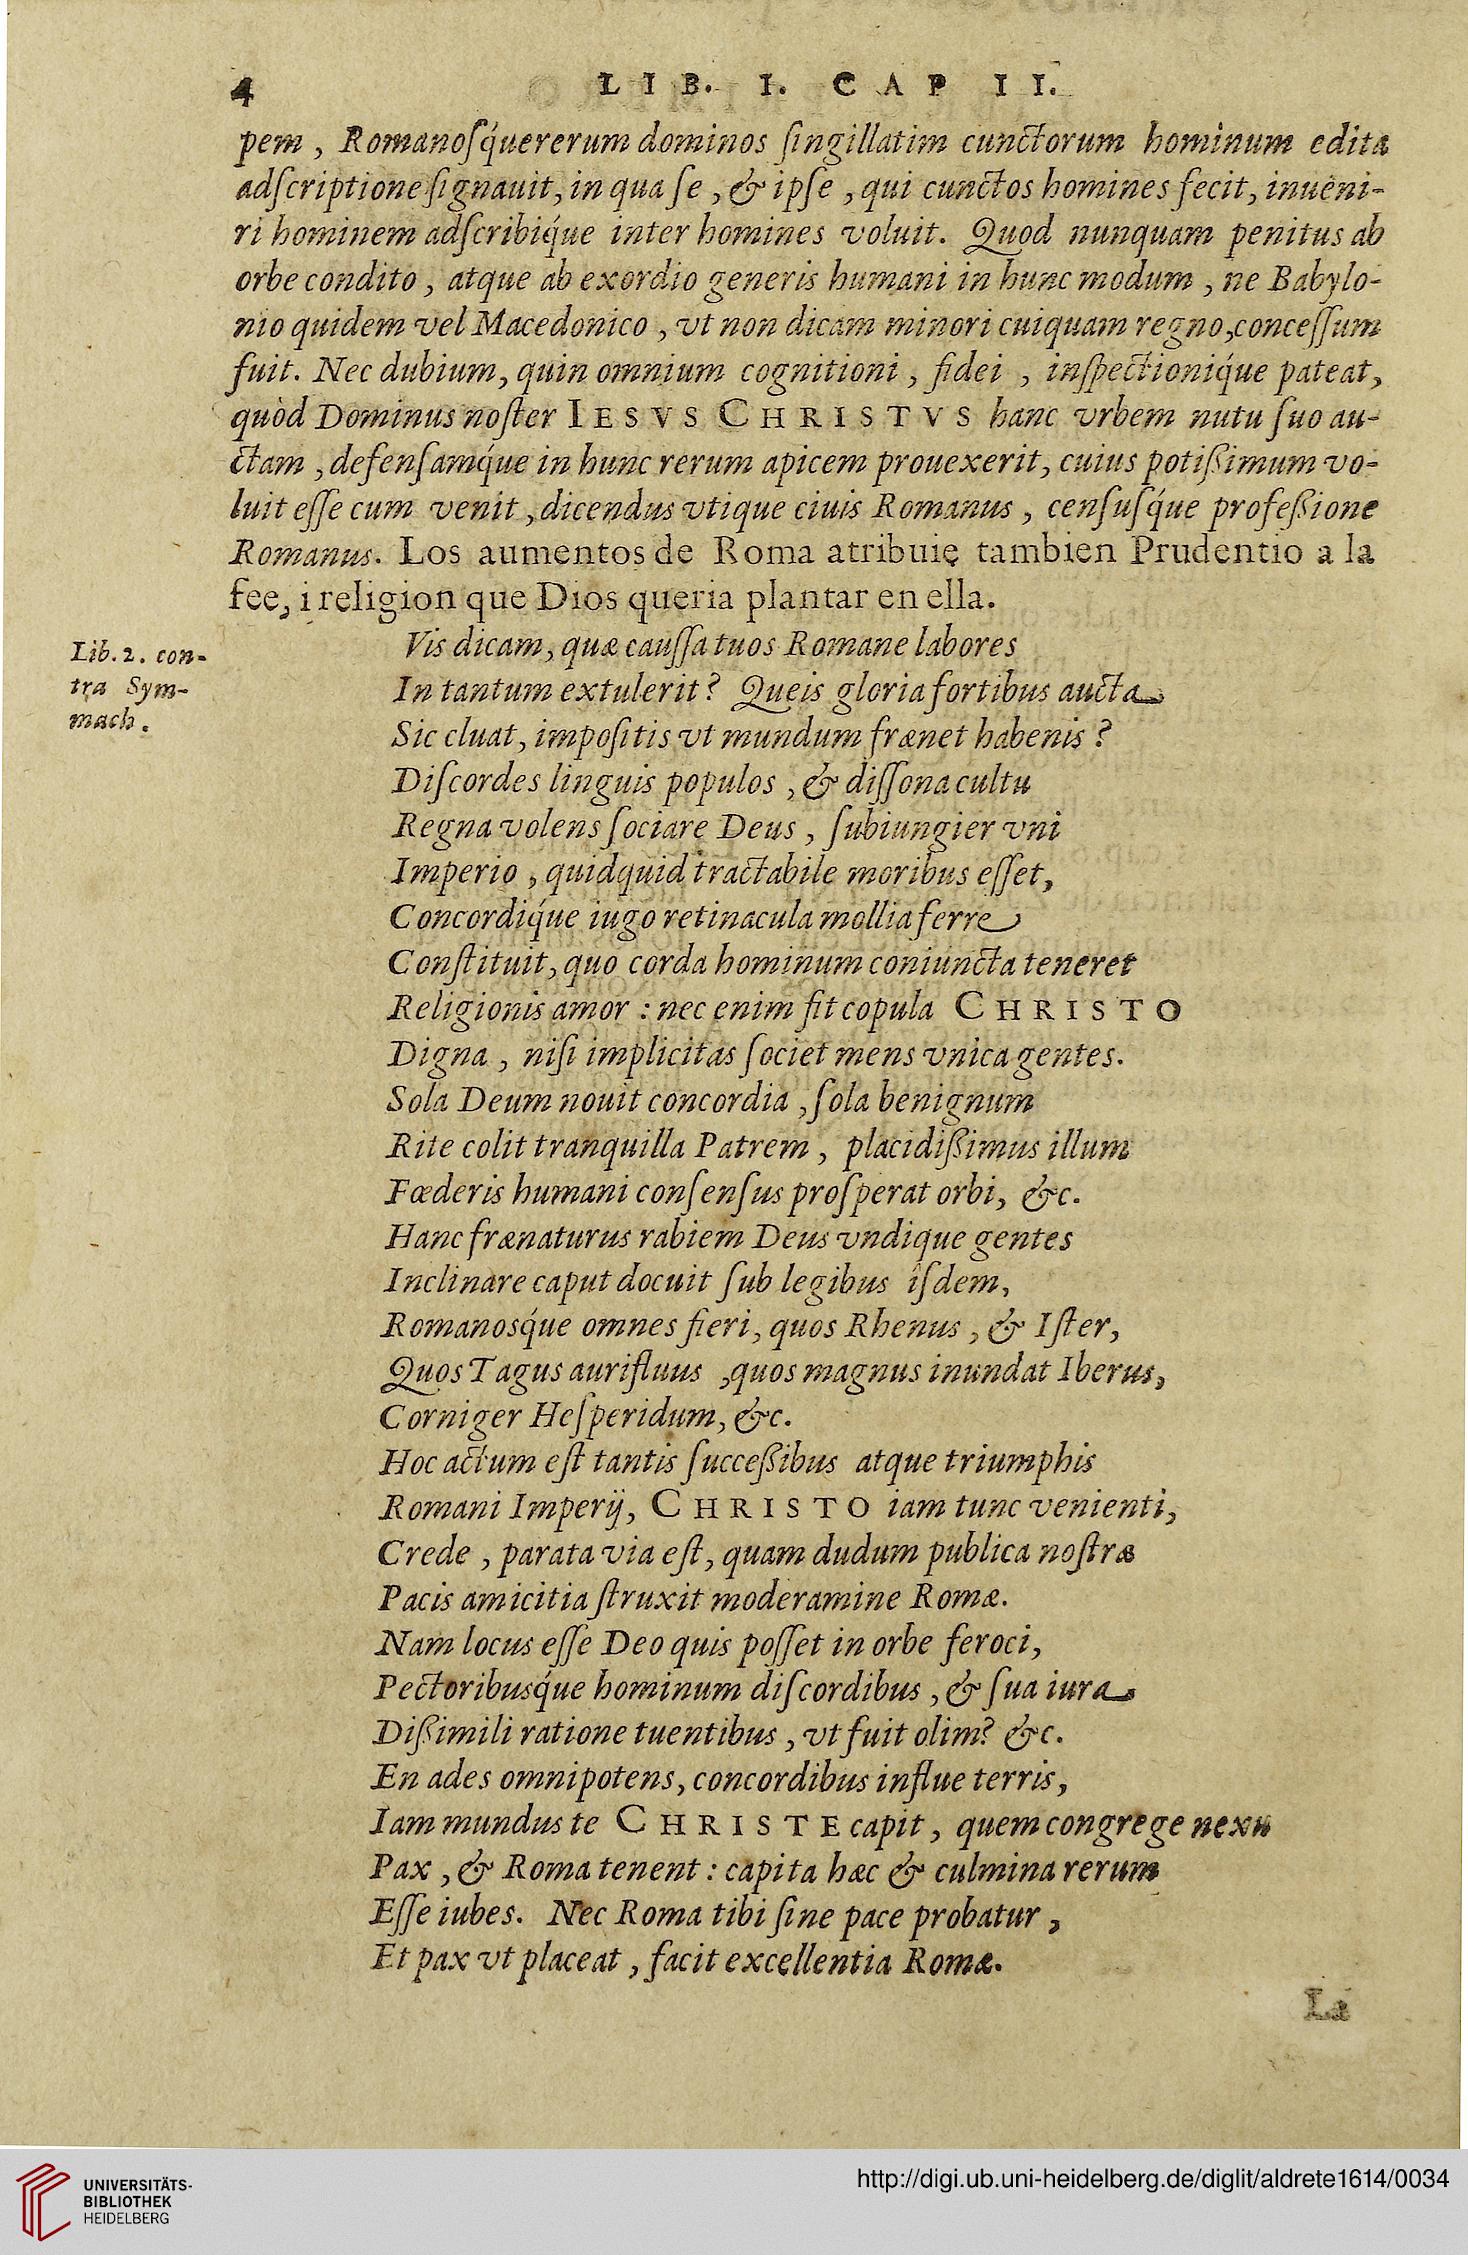 4 LIB. I. CAP II.
pem, Romanoſq́uererum dominos ſingillatim cunctorum hominum edita
adſcriptione ſignauit, in qua ſe, & ipſe, qui cunctos homines fecit, inueni-
ri hominem adſcribiq́ue inter homines voluit. Quod nunquam penitus ab
orbe condito, atque ab exordio generis humani in hunc modum, ne Babylo-
nio quidem vel Macedonico, vt non dicam minori cuiquam regno, conceſſum
fuit. Nec dubium, quin omnium cognitioni, fidei, inſpectioniq́ue pateat,
quòd Dominus noſter IESVS CHRISTVS hanc vrbem nutu ſuo au-
ctam, defenſamq́ue in hunc rerum apicem prouexerit, cuius potißimum vo-
luit eſſe cum venit, dicendus vtique ciuis Romanus, cenſuſq́ue profeßione
Romanus. Los aumentos de Roma atribuię tambien Prudentio a la
fee, i religion que Dios queria plantar en ella.
Lib. 2. con-
tra Sym-
mach.
Vis dicam, quæ cauſſa tuos Romane labores
In tantum extulerit? Queis gloria fortibus aucta
Sic cluat, impoſitis vt mundum frænet habenis?
Diſcordes linguis populos, & diſſona cultu
Regna volens ſociare Deus, ſubiungier vni
Imperio, quidquid tractabile moribus eſſet,
Concordiq́ue iugo retinacula mollia ferre
Conſtituit, quo corda hominum coniuncta teneret
Religionis amor: nec enim fit copula CHRISTO
Digna, niſi implicitas ſociet mens vnica gentes.
Sola Deum nouit concordia, ſola benignum
Rite colit tranquilla Patrem, placidißimus illum
Fœderis humani conſenſus proſperat orbi, &c.
Hanc frænaturus rabiem Deus vndique gentes
Inclinare caput docuit ſub legibus îſdem,
Romanosq́ue omnes fieri, quos Rhenus, & Iſter,
Quos Tagus aurifluus, quos magnus inundat Iberus,
Corniger Heſperidum, &c.
Hoc actum eſt tantis ſucceßibus atque triumphis
Romani Imperij, CHRISTO iam tunc venienti,
Crede, parata via eſt, quam dudum publica noſtræ
Pacis amicitia ſtruxit moderamine Romæ.
Nam locus eſſe Deo quis poſſet in orbe feroci,
Pectoribusq́ue hominum diſcordibus, & ſua iura
Dißimili ratione tuentibus, vt fuit olim? &c.
En ades omnipotens, concordibus influe terris,
Iam mundus te CHRISTE capit, quem congrege nexu
Pax, & Roma tenent: capita hæc & culmina rerum
Eſſe iubes. Nec Roma tibi ſine pace probatur,
Et pax vt placeat, facit excellentia Romæ.
La
UNIVERSITÄTS-
BIBLIOTHEK
HEIDELBERG
http://digi.ub.uni-heidelberg.de/diglit/aldrete1614/0034